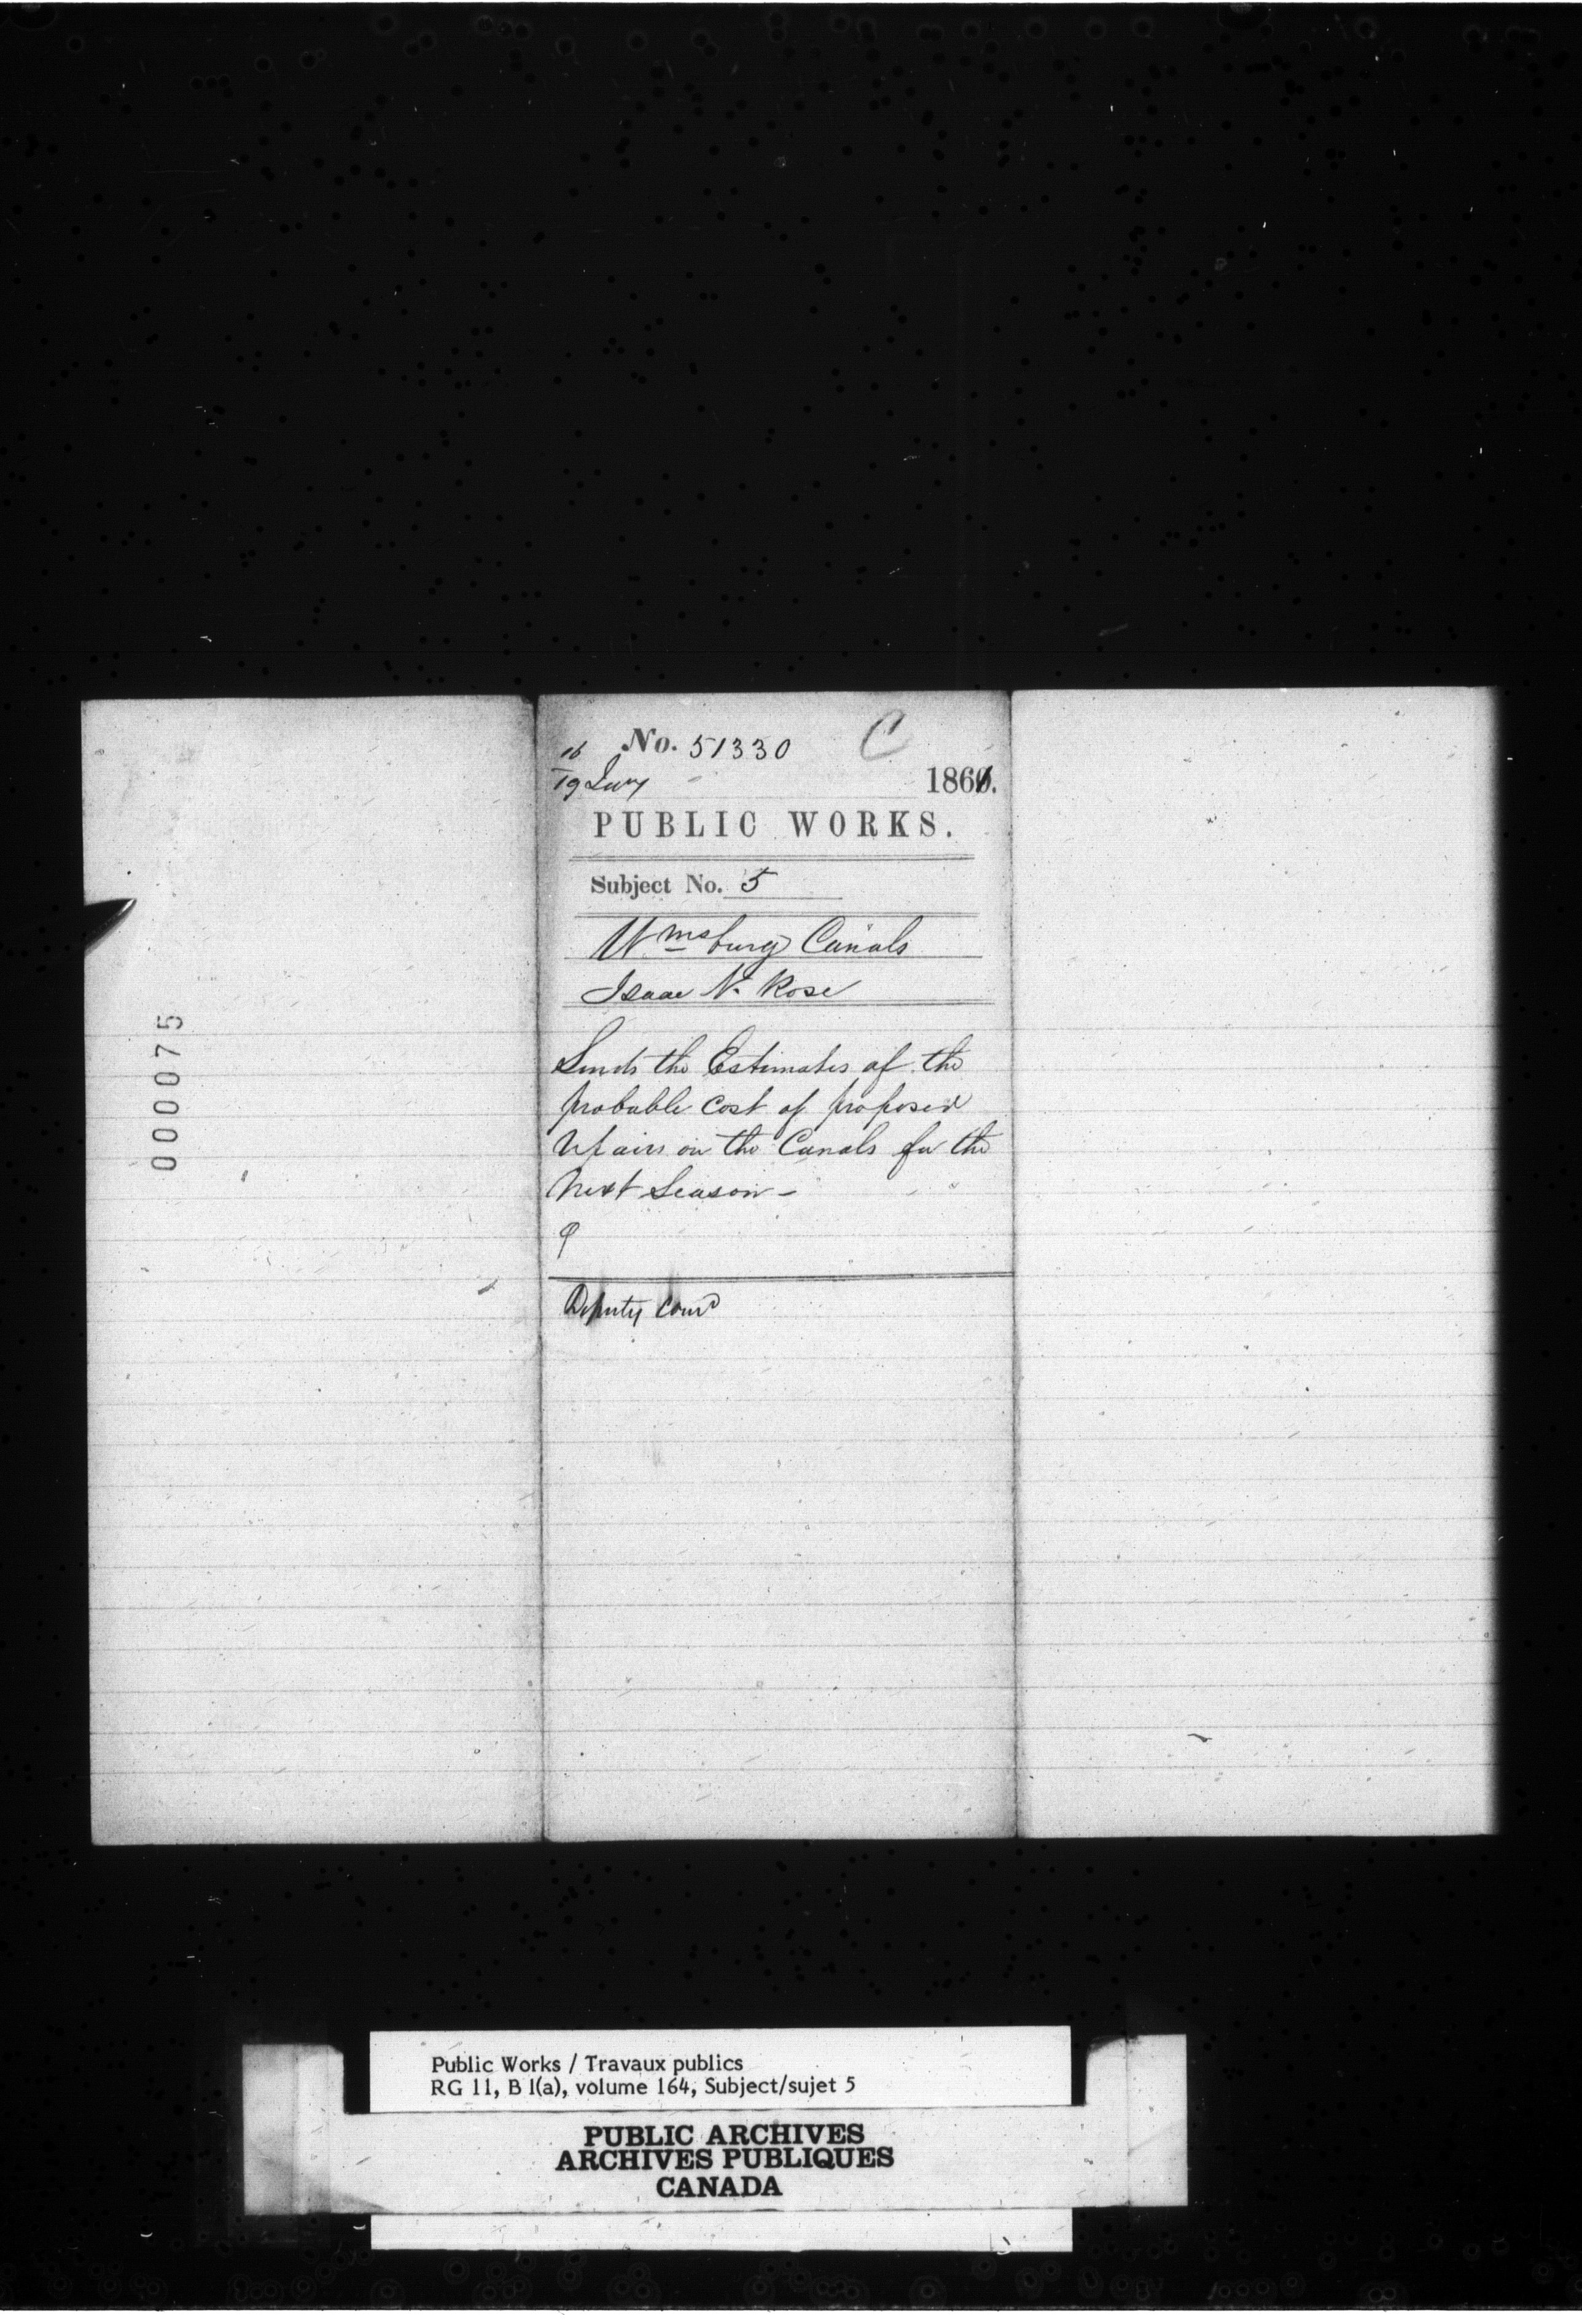 No. 51330 C
16
19 Jany 1861.
PUBLIC WORKS.
Subject No. 5
Wmsburg Canals
Isaac N. Rose
Sends the Estimates of the
probable cost of proposed
repairs on the Canals for the
next Season -
Deputy Comr
000075
Public Works / Travaux publics
RG 11, B 1(a), volume 164, Subject/sujet 5
PUBLIC ARCHIVES
ARCHIVES PUBLIQUES
CANADA